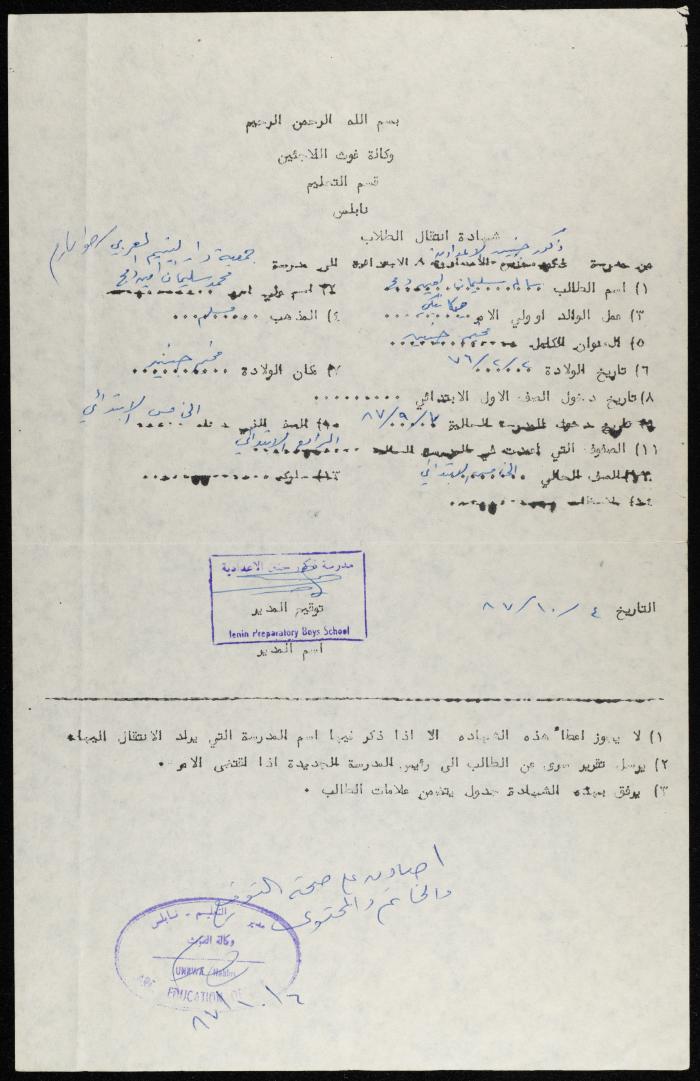 بسم الله الرحمن الرحيم
وكالة غوث اللاجئين
قسم التعليم
نابلس
شهادة انتقال الطلاب
من مدرسة ذكور جنين الاعدادية الى مدرسة جمعية دار اليتيم العربي
١) اسم الطالب سليمان ٢) اسم ولي امره محمد سليمان
٣) عمل الوالد او ولي الامر ميكانيكي ٤) المذهب مسلم
٥) العنوان الكامل مخيم جنين
٦) تاريخ الولادة ٧٦/٢/٢ ٧) مكان الولادة مخيم جنين
٨) تاريخ دخول الصف الاول الابتدائي
٩) تاريخ دخول المدرسة الحالية ٨٧/٩/٧ ١٠) الصف الذي دخله الخامس الابتدائي
١١) الصفوف التي اعيدت في المدرسة الحالية الرابع الابتدائي
١٢) الصف الحالي الخامس الابتدائي ١٣) سلوكه
١٤) ملاحظات
مدرسة ذكور جنين الاعدادية
توقيع المدير
Jenin Preparatory Boys School
اسم المدير
التاريخ ٨٧/١٠/٤
١) لا يجوز اعطاء هذه الشهاده الا اذا ذكر فيها اسم المدرسة التي يراد الانتقال اليها
٢) يرسل تقرير سرى عن الطالب الى رئيس المدرسة الجديدة اذا اقتضى الامر .
٣) يرفق بهذه الشهادة جدول يتضمن علامات الطالب .
اصادق على صحة التوقيع
والخاتم والمحتوى
مدير التعليم - نابلس
وكالة الغوث
UNRWA Nablus
EDUCATION